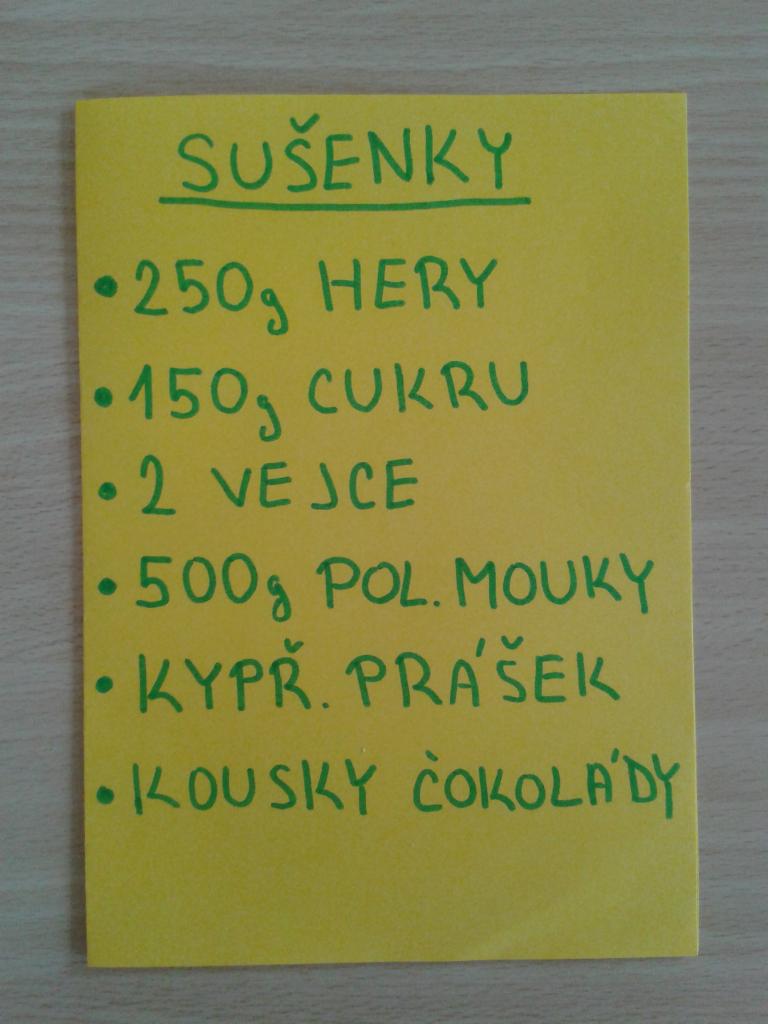 SUŠENKY
• 250g HERY
• 150g CUKRU
• 2 VEJCE
• 500g POL. MOUKY
• KYPŘ. PRÁŠEK
• KOUSKY ČOKOLÁDY